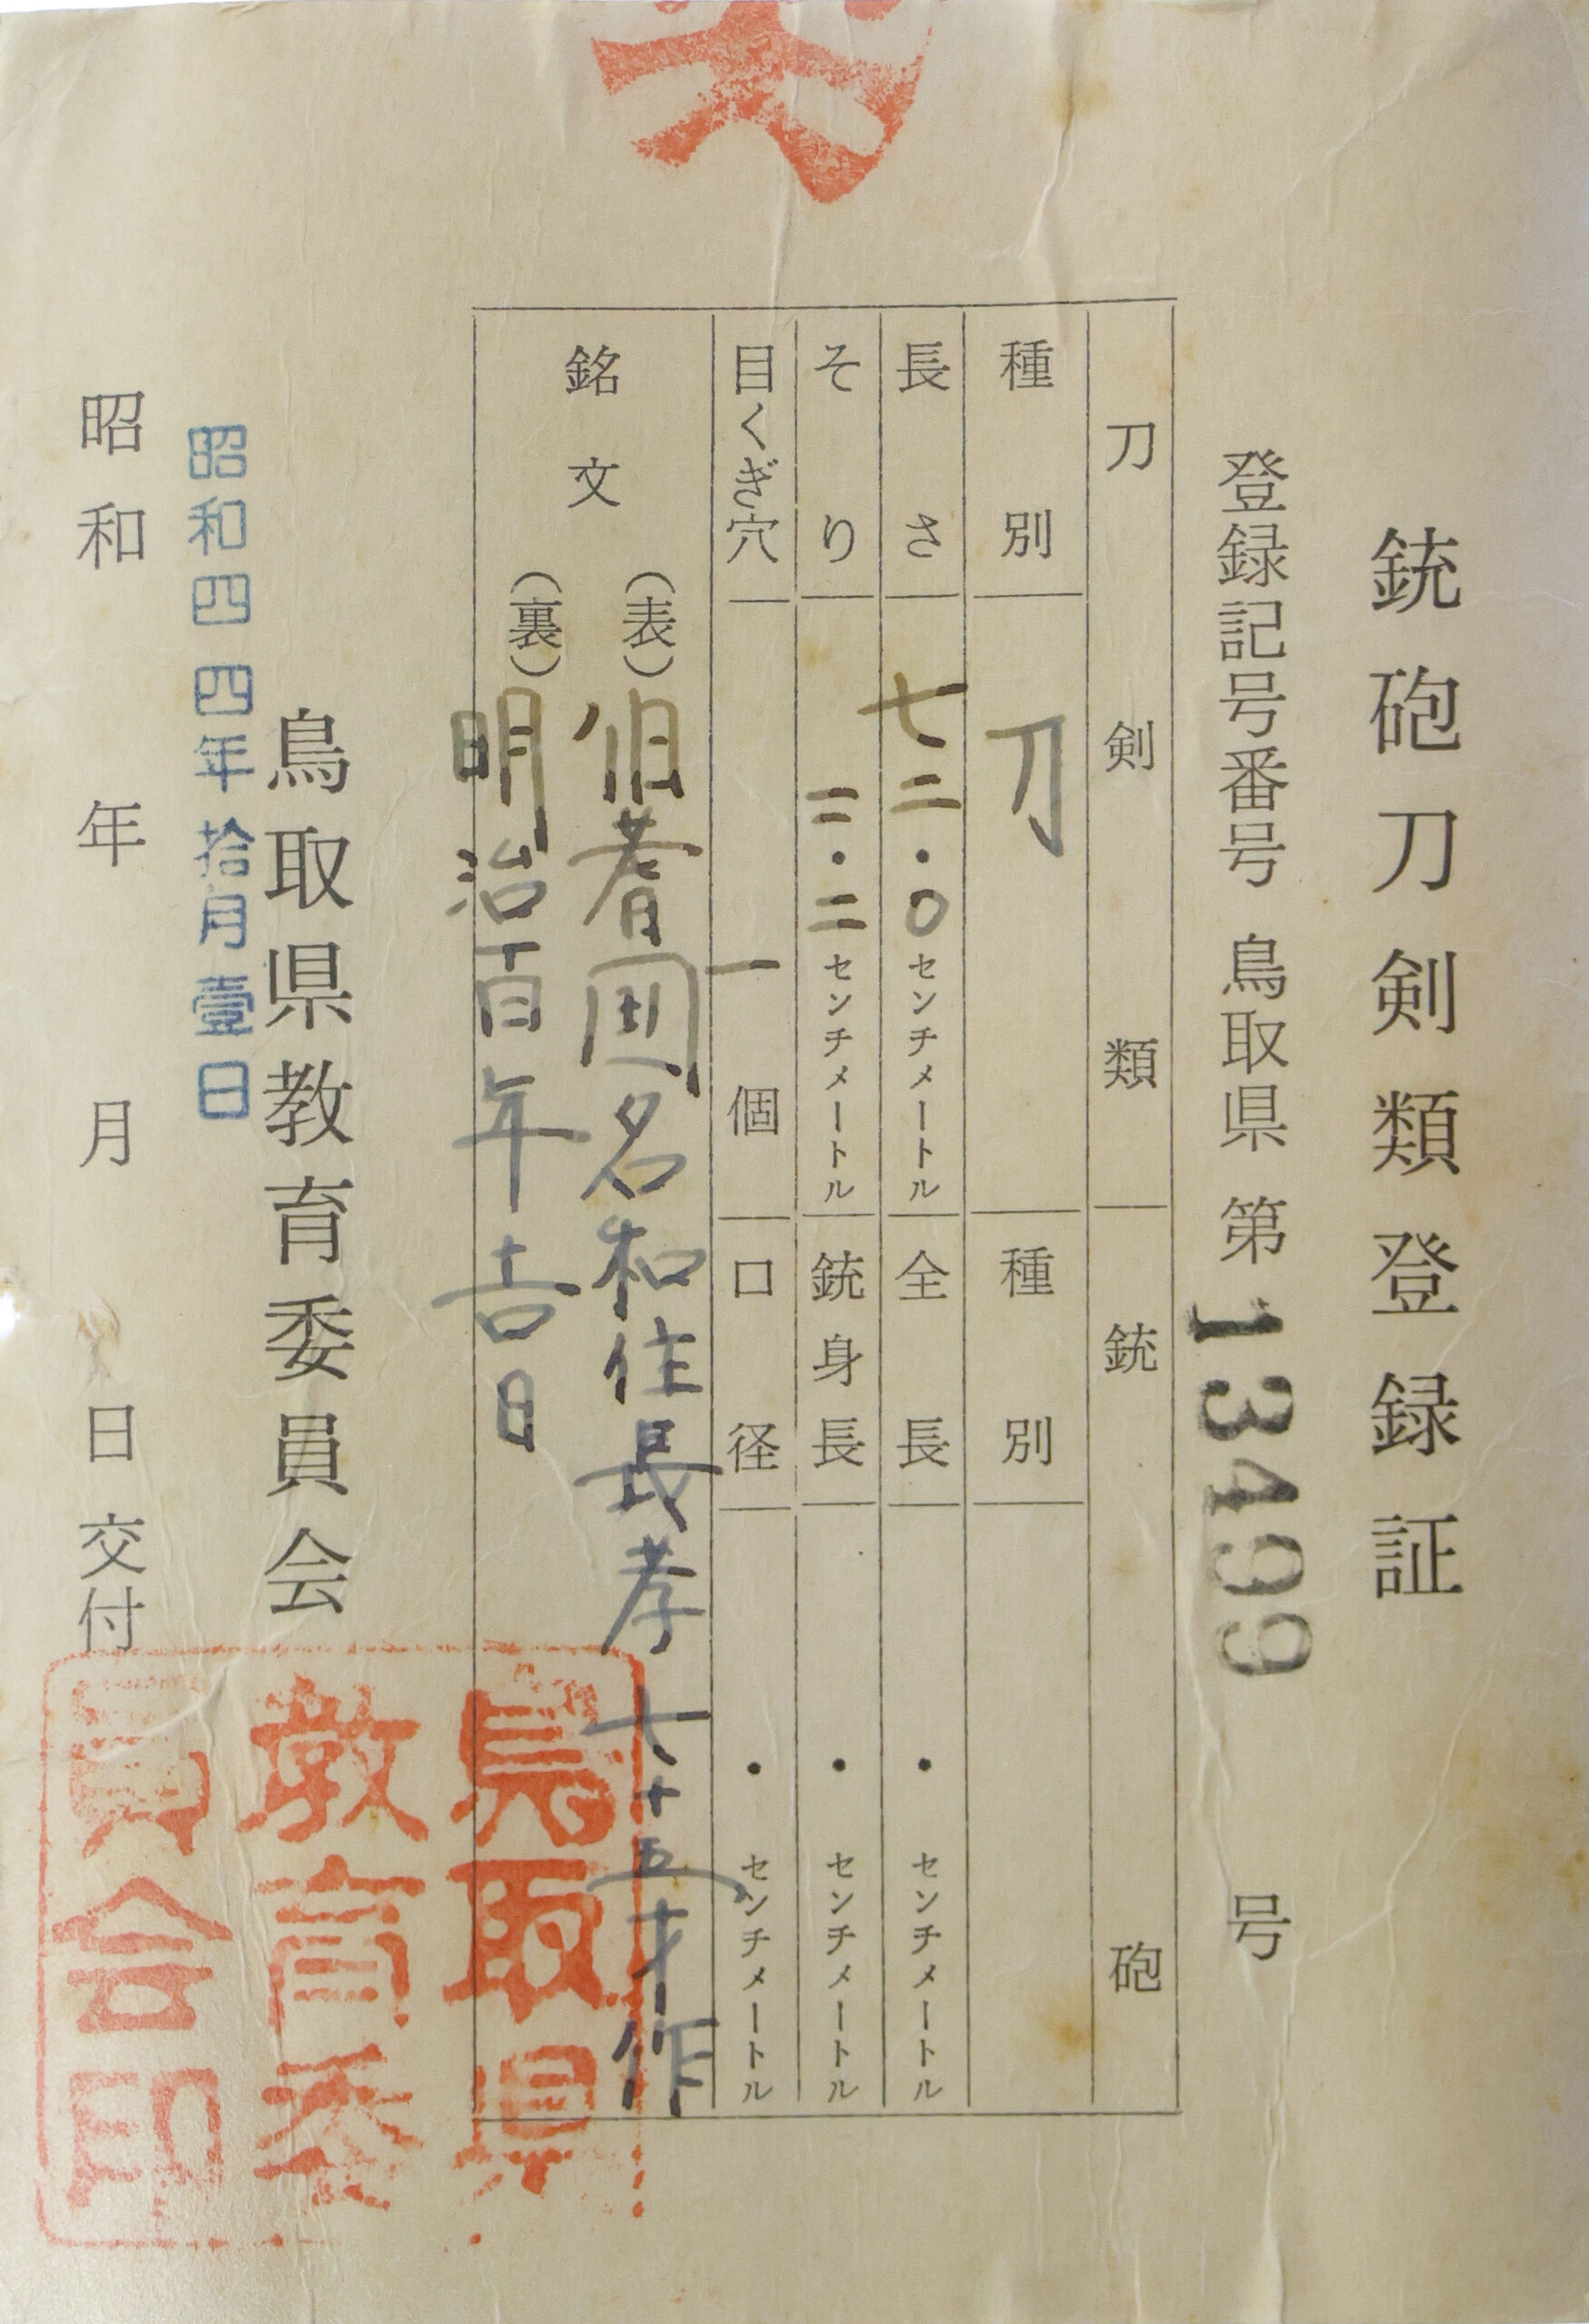 銃砲刀剣類登録証
登録記号番号 鳥取県 第 13499 号
刀剣類
銃砲
種別 刀
種別
長さ 七二・〇センチメートル
全長 ・ センチメートル
そり 二・二センチメートル
銃身長 ・ センチメートル
目くぎ穴 一個
口径 ・ センチメートル
銘文
(表)伯耆国名和住長孝七十五才作
(裏)明治百年吉日
鳥取県教育委員会
昭和四四年拾月壹日
昭和 年 月 日交付
鳥取県
教育委
員会印